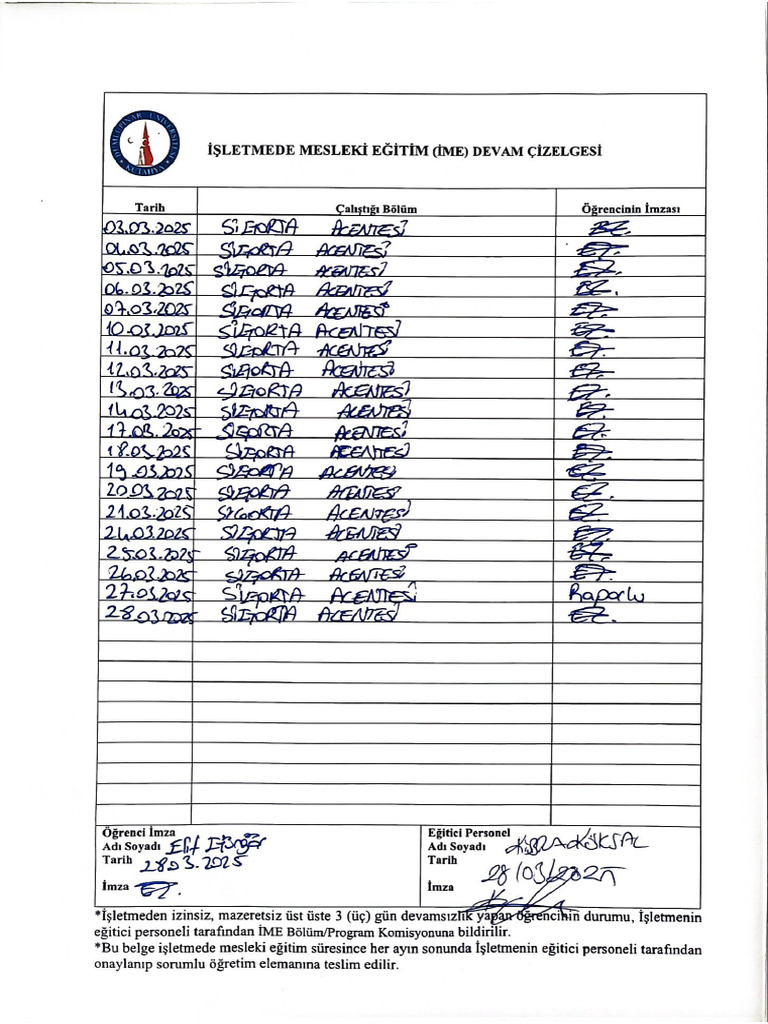 DUMLUPINAR ÜNİVERSİTESİ
KÜTAHYA
İŞLETMEDE MESLEKİ EĞİTİM (İME) DEVAM ÇİZELGESİ
Tarih Çalıştığı Bölüm Öğrencinin İmzası
03.03.2025 SİGORTA ACENTESİ
04.03.2025 SİGORTA ACENTESİ
05.03.2025 SİGORTA ACENTESİ
06.03.2025 SİGORTA ACENTESİ
07.03.2025 SİGORTA ACENTESİ
10.03.2025 SİGORTA ACENTESİ
11.03.2025 SİGORTA ACENTESİ
12.03.2025 SİGORTA ACENTESİ
13.03.2025 SİGORTA ACENTESİ
14.03.2025 SİGORTA ACENTESİ
17.03.2025 SİGORTA ACENTESİ
18.03.2025 SİGORTA ACENTESİ
19.03.2025 SİGORTA ACENTESİ
20.03.2025 SİGORTA ACENTESİ
21.03.2025 SİGORTA ACENTESİ
24.03.2025 SİGORTA ACENTESİ
25.03.2025 SİGORTA ACENTESİ
26.03.2025 SİGORTA ACENTESİ
27.03.2025 SİGORTA ACENTESİ Raporlu
28.03.2025 SİGORTA ACENTESİ
Öğrenci İmza
Adı Soyadı Elif
Tarih 28.03.2025
İmza
Eğitici Personel
Adı Soyadı KÜBRA KÖKSAL
Tarih 28/03/2025
İmza
*İşletmeden izinsiz, mazeretsiz üst üste 3 (üç) gün devamsızlık yapan öğrencinin durumu, İşletmenin
eğitici personeli tarafından İME Bölüm/Program Komisyonuna bildirilir.
*Bu belge işletmede mesleki eğitim süresince her ayın sonunda İşletmenin eğitici personeli tarafından
onaylanıp sorumlu öğretim elemanına teslim edilir.